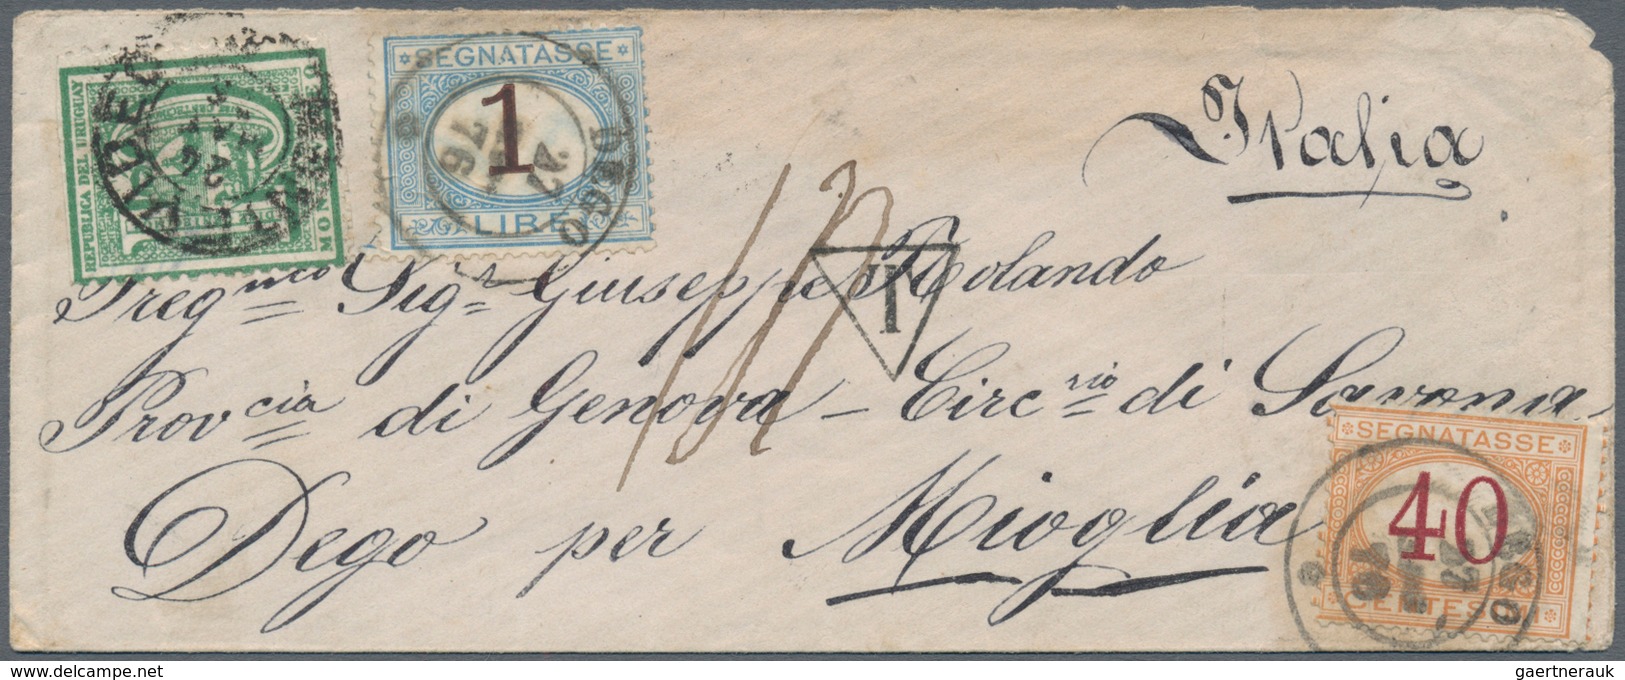 REPUBLICA DEL URUGUAY
MONTEVIDEO
SEGNATASSE
1
LIRE
DEGO
76
Italia
T
Preg.mo Sig.r Giuseppe Rolando
Prov.cia di Genova – Circ.rio di Savona
Dego per Mioglia
SEGNATASSE
40
CENTESIMI
DEGO
gaertnerauk